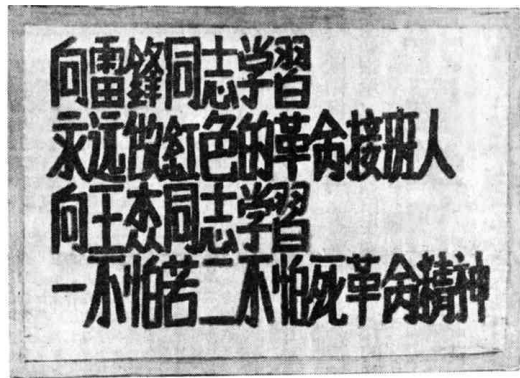 向雷鋒同志学習
永远做紅色的革命接班人
向王杰同志学習
一不怕苦二不怕死革命精神